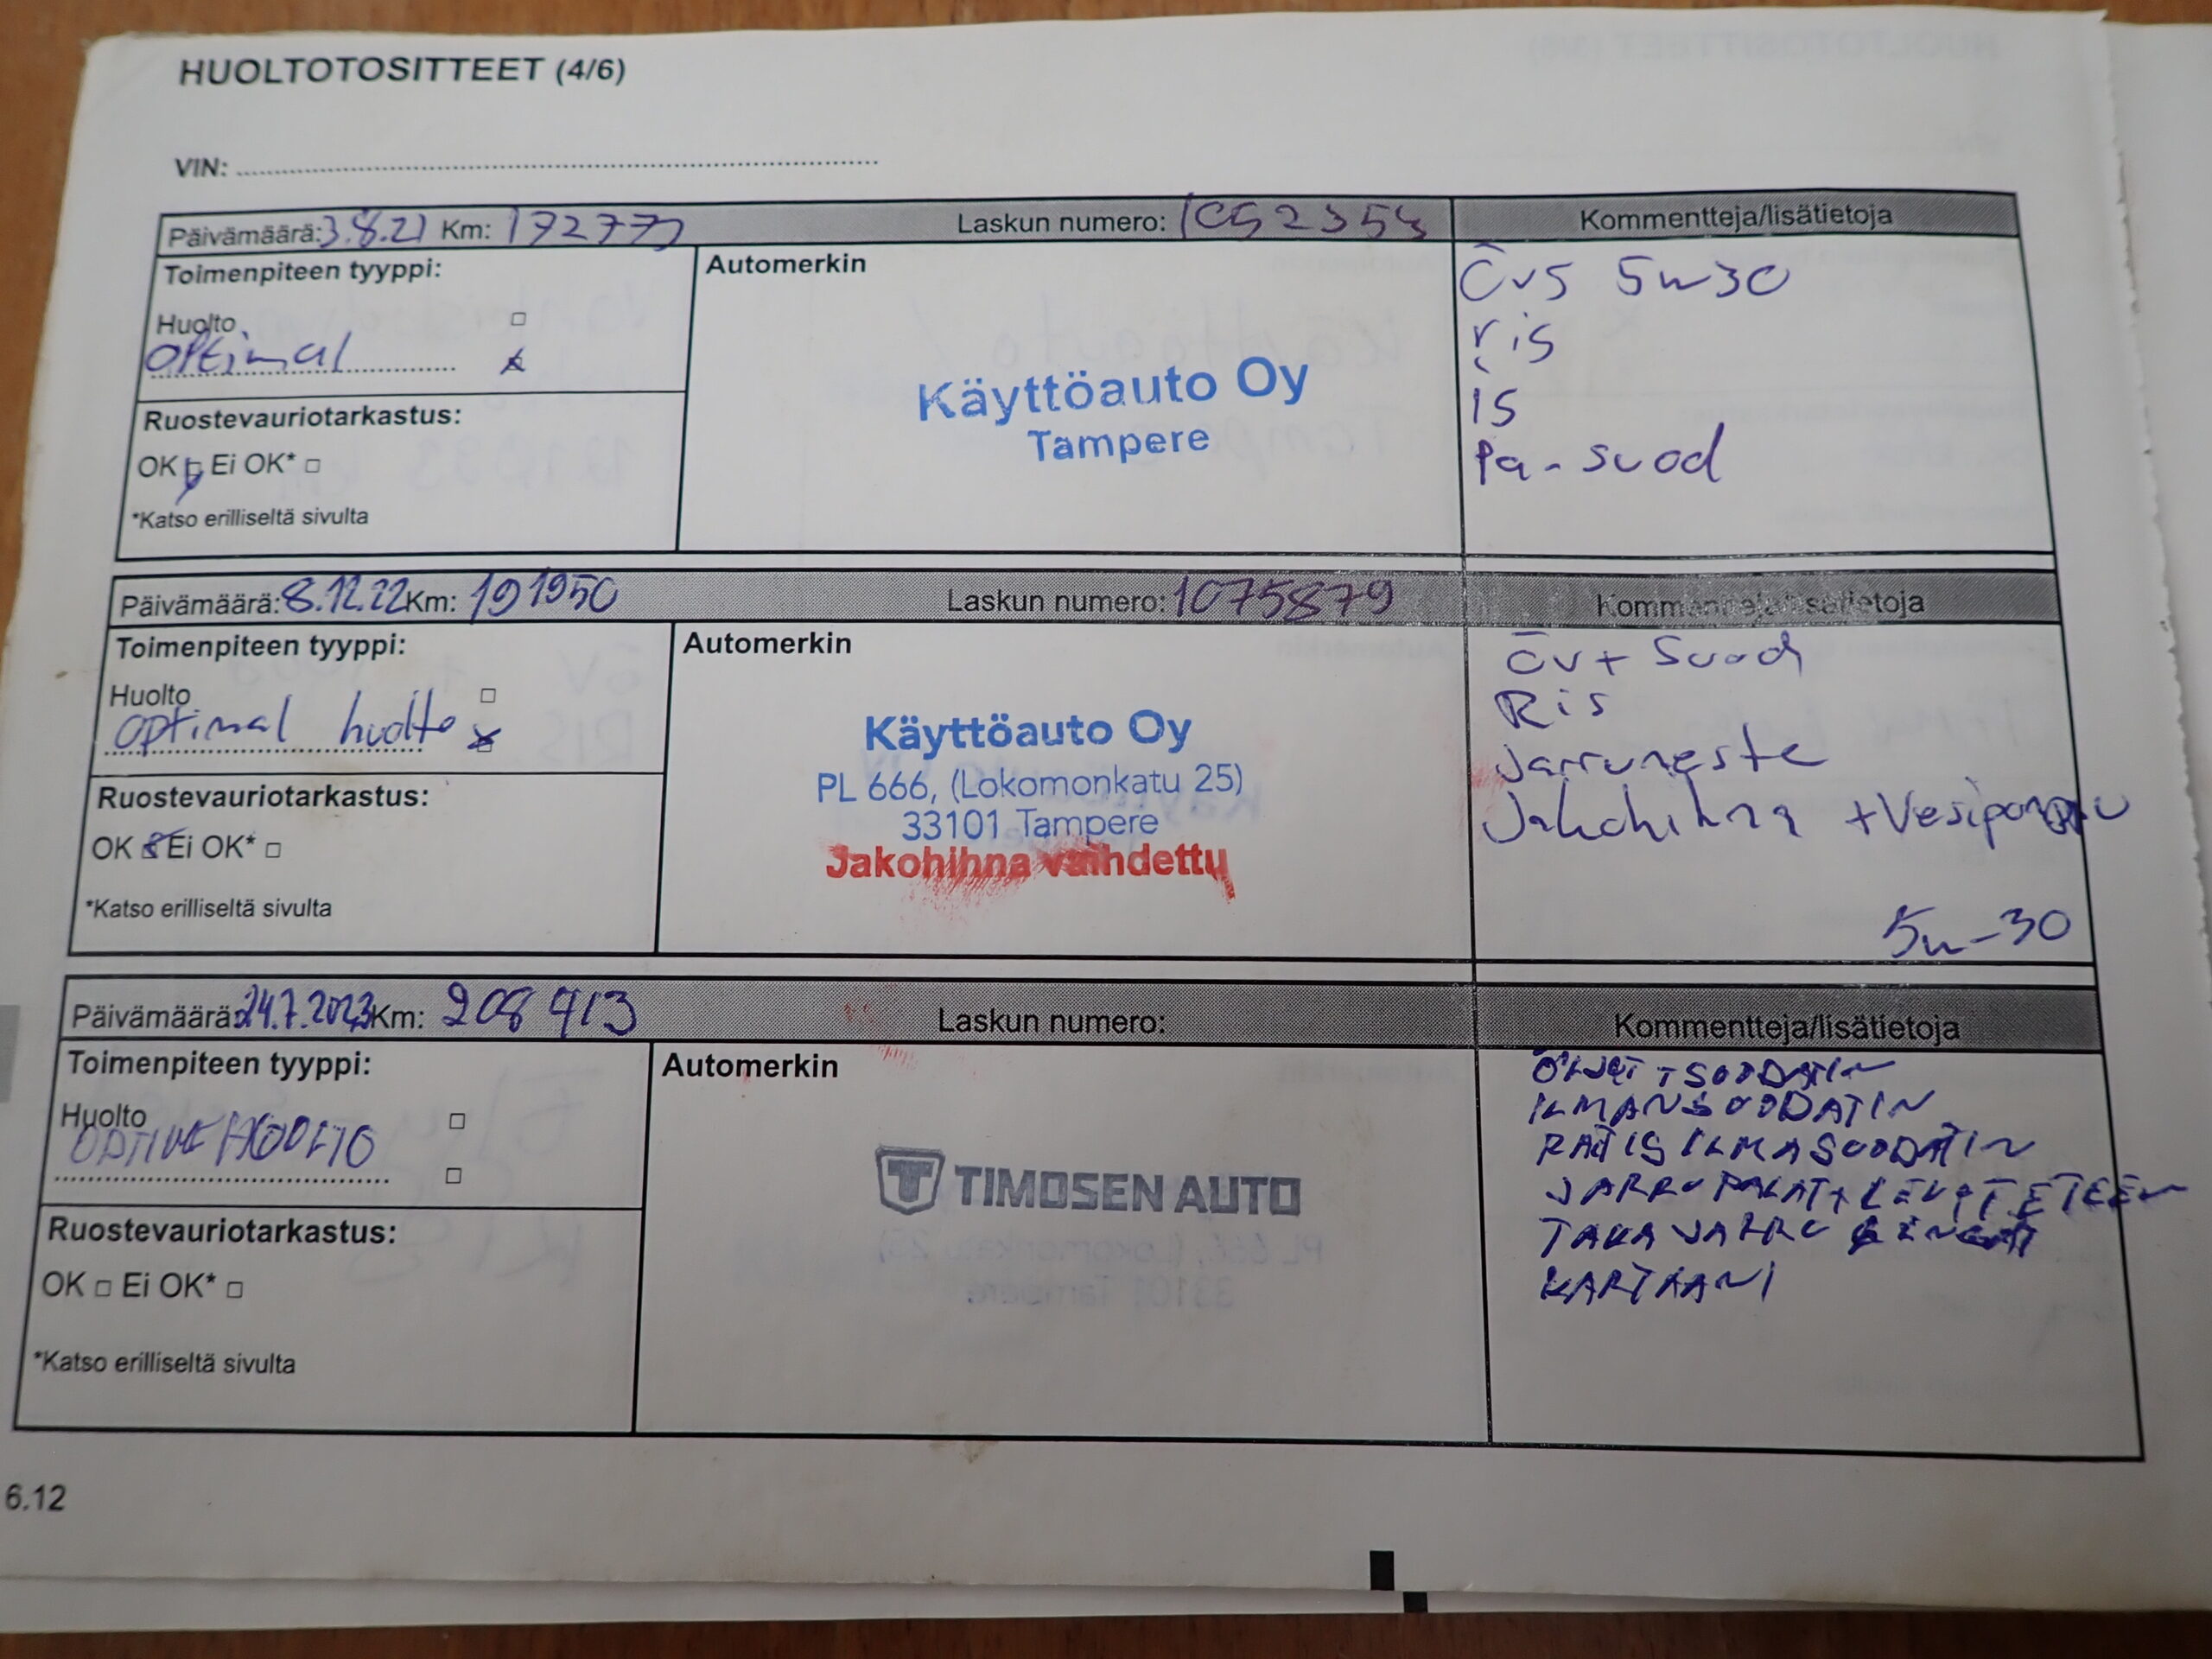 HUOLTOTOSITTEET (4/6)
VIN:
Päivämäärä: 3.8.21 Km: 172775 Laskun numero: Kommentteja/lisätietoja
Toimenpiteen tyyppi:
Huolto
optimal
Ruostevauriotarkastus:
OK Ei OK*
*Katso erilliseltä sivulta
Automerkin
Käyttöauto Oy
Tampere
Övs 5w30
ris
is
Pa-suod
Päivämäärä: 8.12.22 Km: 191950 Laskun numero: 1075879 Kommentteja/lisätietoja
Toimenpiteen tyyppi:
Huolto
optimal huolto
Ruostevauriotarkastus:
OK Ei OK*
*Katso erilliseltä sivulta
Automerkin
Käyttöauto Oy
PL 666, (Lokomonkatu 25)
33101 Tampere
Jakohihna vaihdettu
öv + Suod
Ris
Jarruneste
Jakohihna + Vesipumppu
5w-30
Päivämäärä: 24.7.2023 Km: 208913 Laskun numero: Kommentteja/lisätietoja
Toimenpiteen tyyppi:
Huolto
HUOLTO
Ruostevauriotarkastus:
OK Ei OK*
*Katso erilliseltä sivulta
Automerkin
TIMOSEN AUTO
ÖLJYT + SUODATIN
ILMANSUODATIN
RAITISILMASUODATIN
JARRUPALAT + LEVYT ETEEN
TAKA JARRU
KARTAANI
6.12